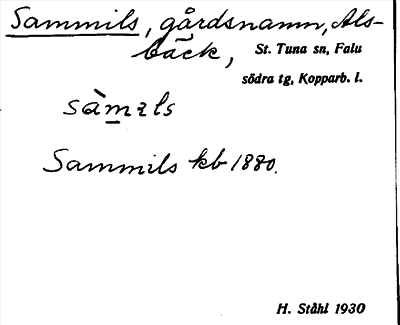 Sammils, gårdsnamn, Als-
bäck, St. Tuna sn, Falu
södra tg, Kopparb. l.
sàmɪls
Sammils kb 1880.
H. Ståhl 1930